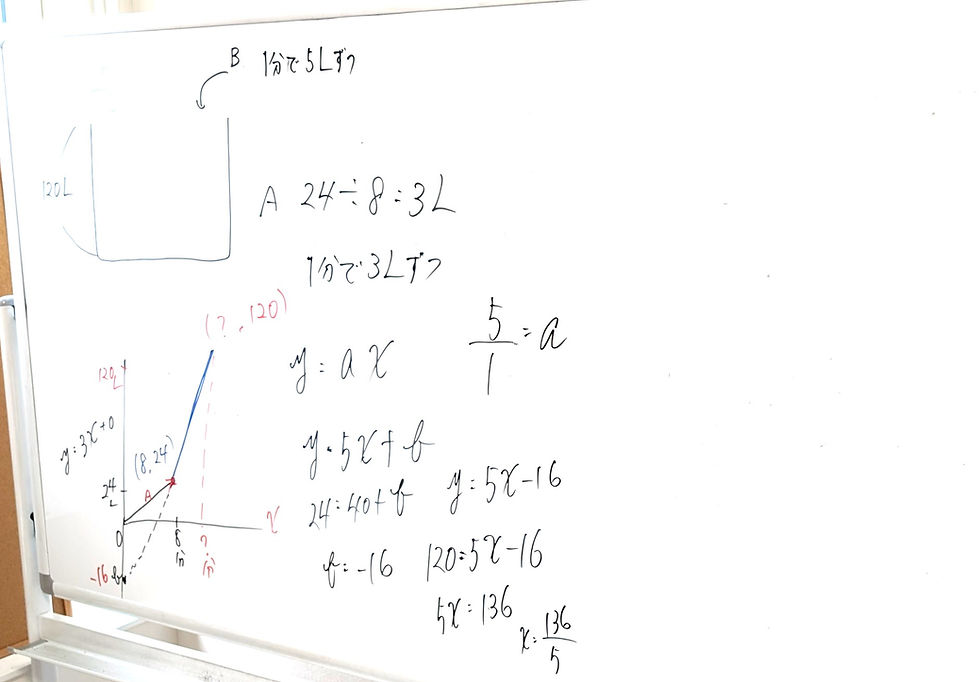 B 1分で5Lずつ
120L
A 24÷8=3L
1分で3Lずつ
(?, 120)
5/1=a
y=ax
120L
y=3x+0
(8,24)
y=5x+b
24L
A
24=40+b
y=5x-16
x
0
8分
?分
b=-16
120=5x-16
-16 b
5x=136
x=136/5